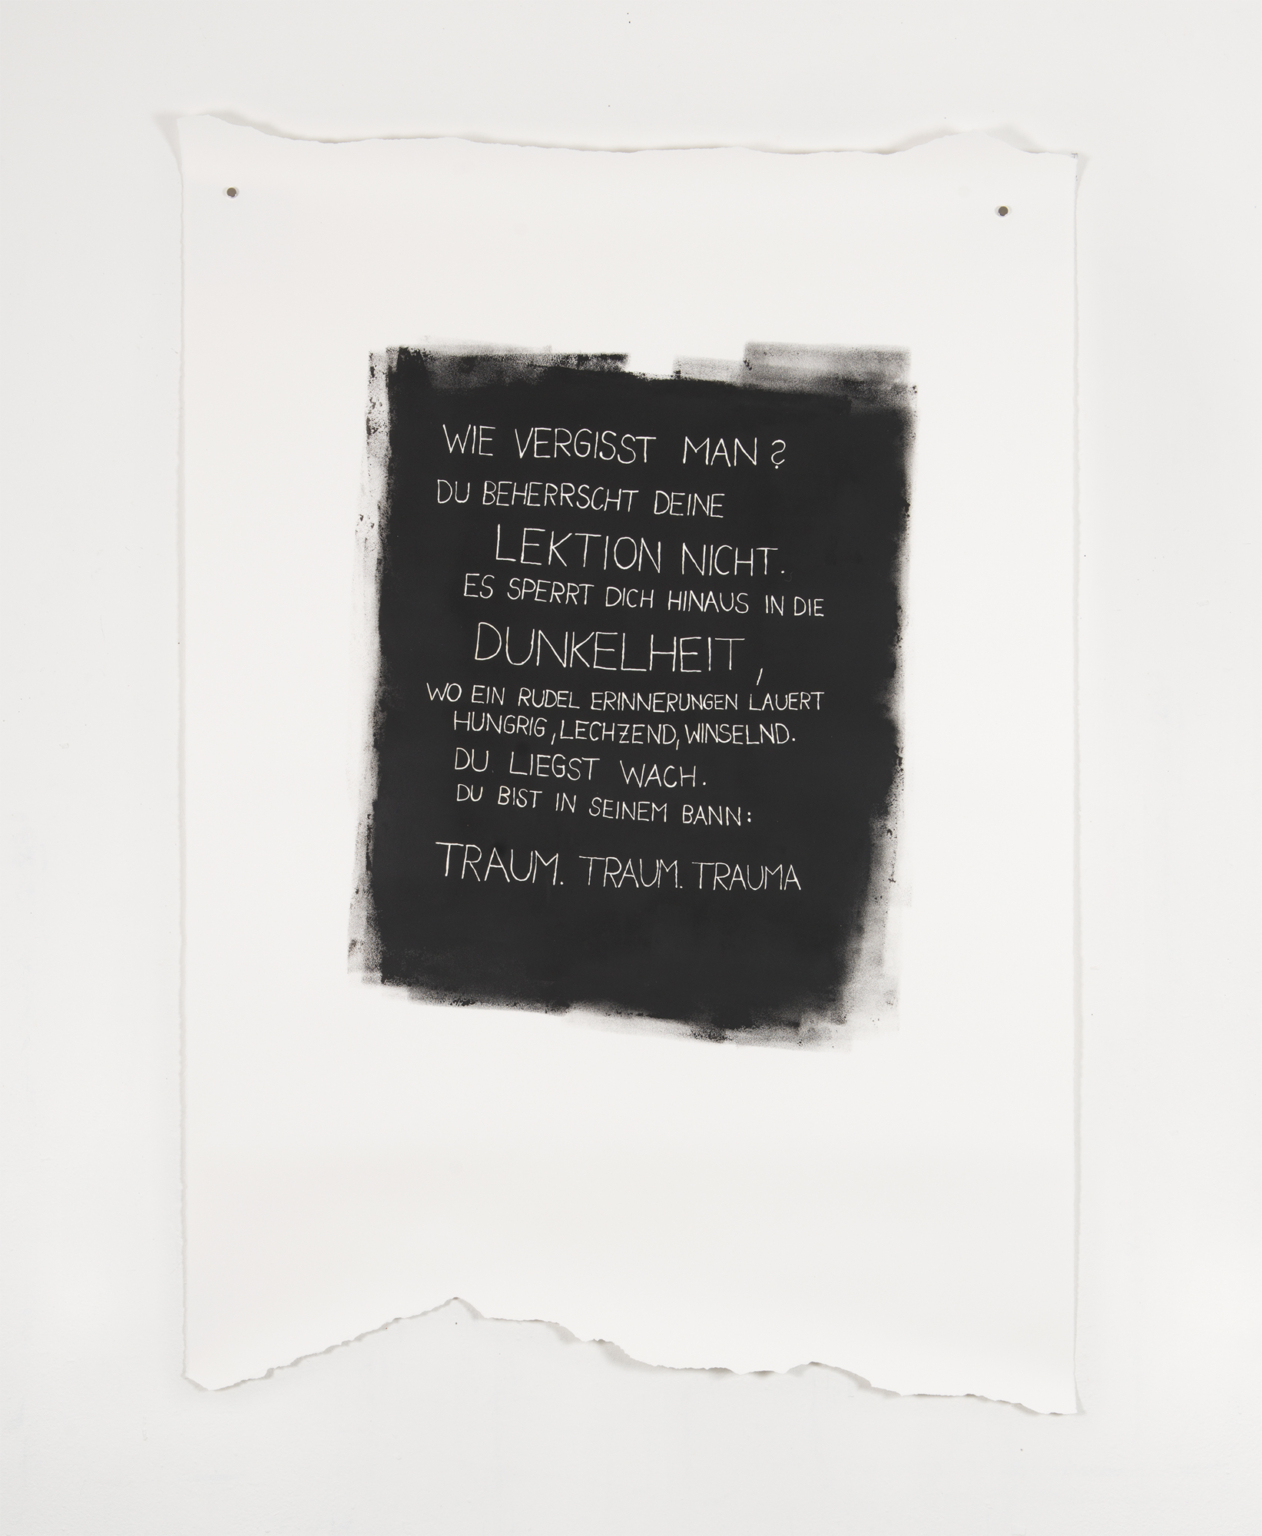 WIE VERGISST MAN?
DU BEHERRSCHT DEINE
LEKTION NICHT.
ES SPERRT DICH HINAUS IN DIE
DUNKELHEIT,
WO EIN RUDEL ERINNERUNGEN LAUERT
HUNGRIG, LECHZEND, WINSELND.
DU LIEGST WACH.
DU BIST IN SEINEM BANN:
TRAUM. TRAUM. TRAUMA